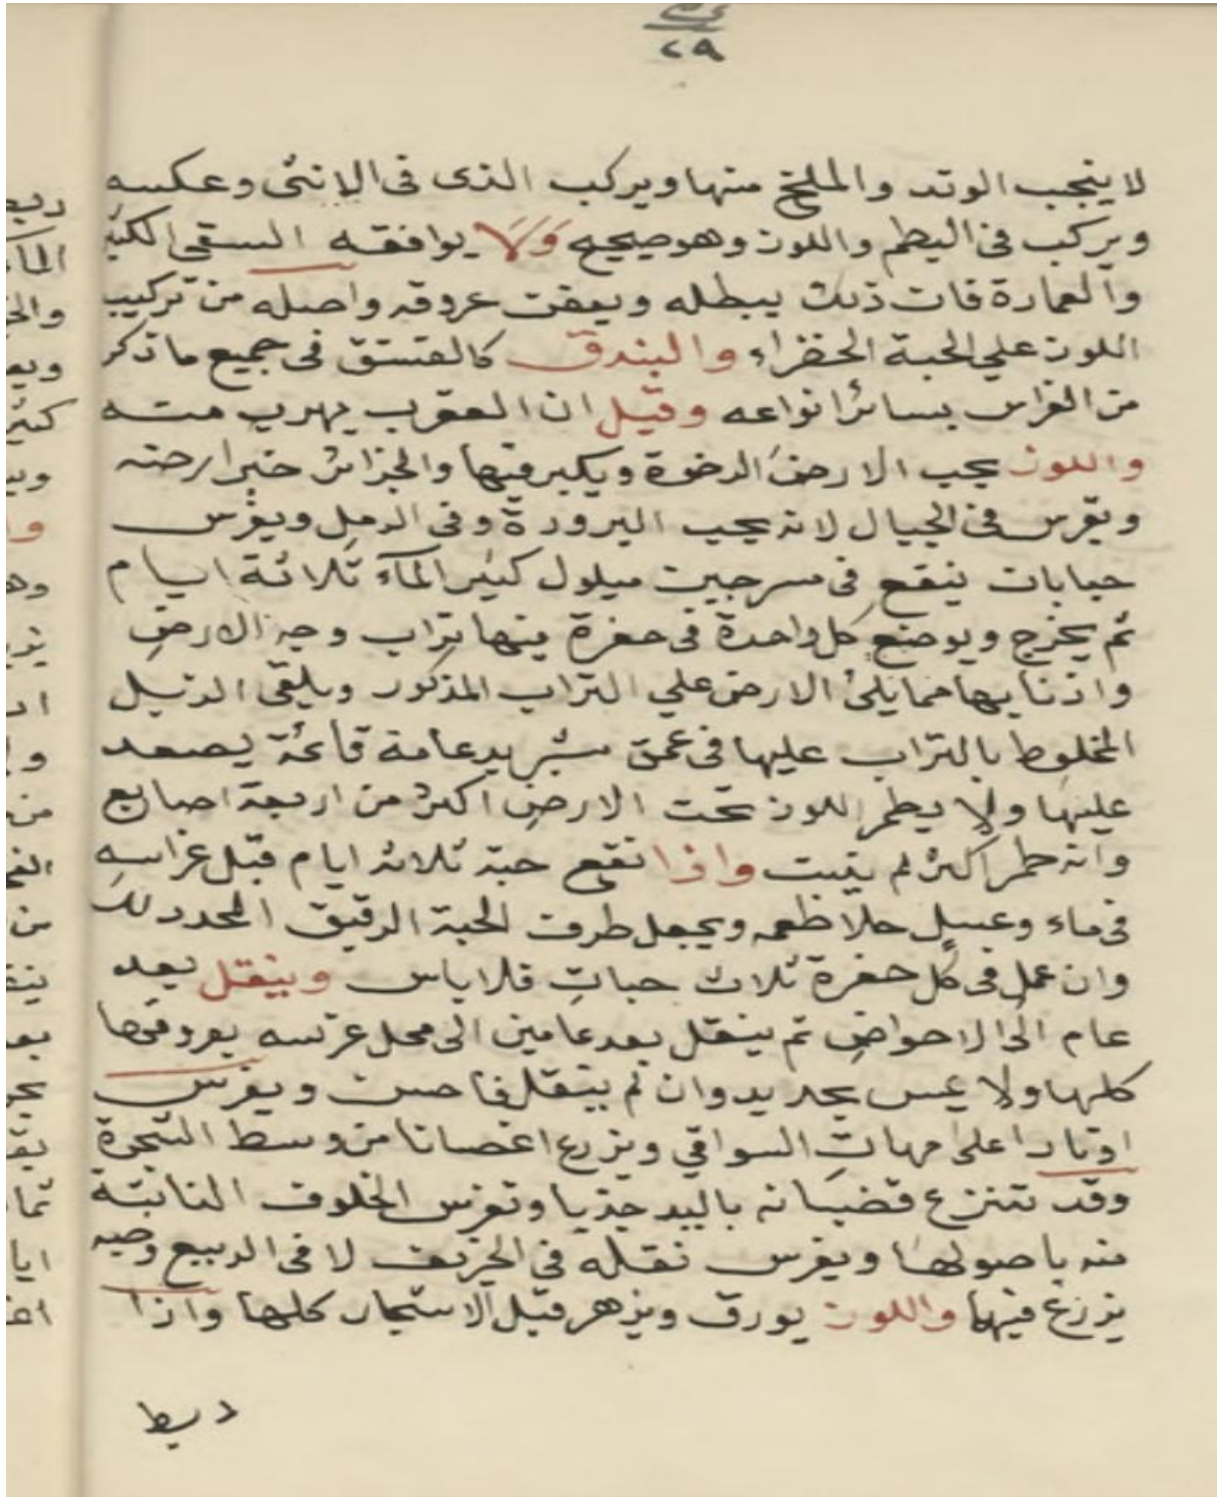 ٢٩
لا ينجب الوتد والملخ منها ويركب الذكر فى الانثى وعكسه
ويركب فى البطم واللوز وهو صحيح ولا يوافقه السقى الكثير
والعمارة فان ذلك يبطله ويعفن عروقه واصله من تركيب
اللوز على الحبة الخضراء والبندق كالفستق فى جميع ما ذكر
من الغراس بسائر انواعه وقيل ان العقرب يهرب منه
واللوز يحب الارض الرخوة ويكبر فيها والجزائر خير ارضه
ويغرس فى الجبال لانه يحب البرودة وفى الرمل ويغرس
حبابات ينقع فى سرجين مبلول كثير المآء ثلاثة ايام
ثم يخرج ويوضع كل واحدة فى حفرة فيها تراب وجه الارض
واذنابها مما يلى الارض على التراب المذكور ويلقى الزبل
المخلوط بالتراب عليها فى عمق شبر بدعامة قائمة يصعد
عليها ولا يطمر اللوز تحت الارض اكثر من اربعة اصابع
وانه طمر اكثر لم ينبت واذا نقع حبة ثلاثة ايام قبل غراسه
فى ماء وعسل حلا طعمه ويجعل طرف الحبة الرقيق المحدد
وان عمل فى كل حفرة ثلاث حبات فلا باس وينقل بعد
عام الى الاحواض ثم ينقل بعد عامين الى محل غرسه بعروقها
كلها ولا يمس بحديد وان لم ينقل فاحسن ويغرس
اوتادا على امهات السواقي ويزرع اغصانا من وسط الشجرة
وقد تنتزع قضبانه باليد جذبا وتغرس الخلوف النابتة
منه باصولها ويغرس نقله فى الخريف لا فى الربيع وحبه
يزرع فيها واللوز يورق ويزهر قبل الاشجار كلها واذا
ربط